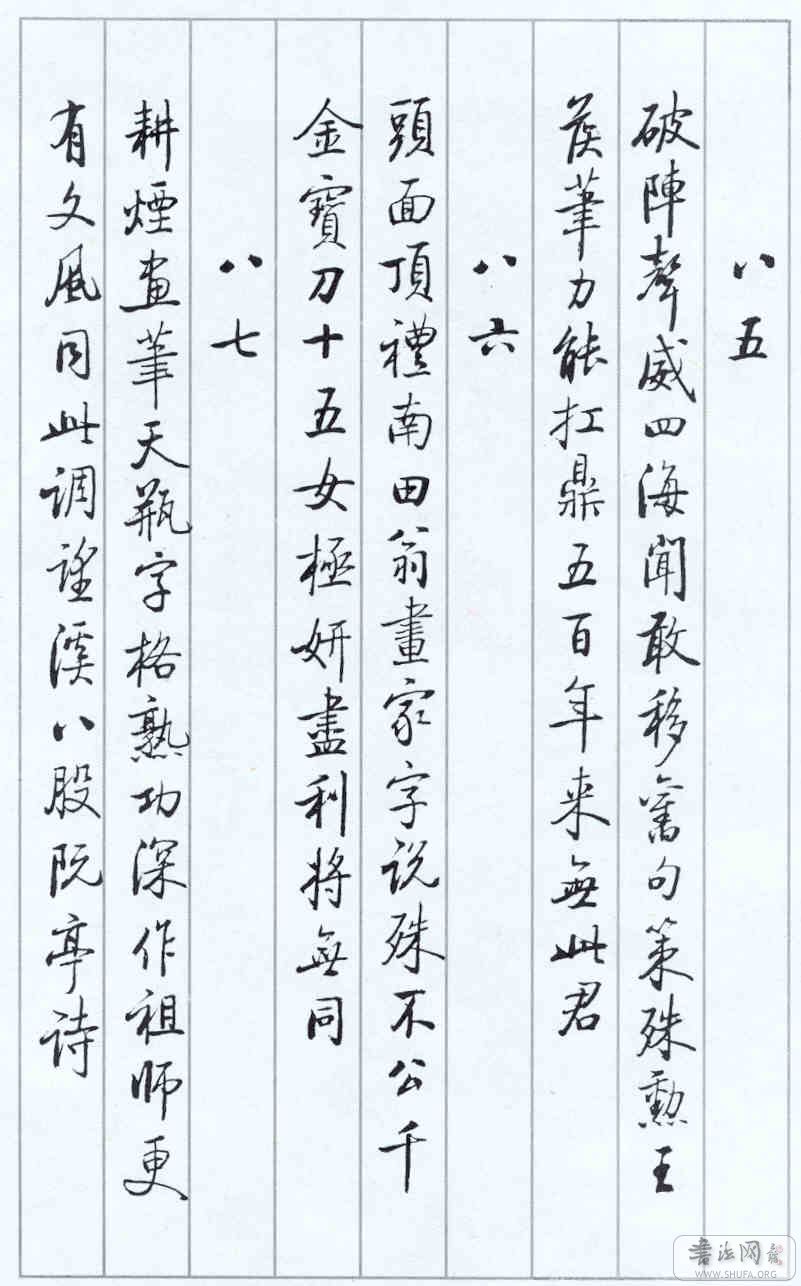 八五
破陣聲威四海聞敢移舊句策殊勳王
侯筆力能扛鼎五百年来無此君
八六
頭面頂禮南田翁畫家字说殊不公千
金寶刀十五女極妍盡利将無同
八七
耕煙画筆天瓶字格熟功深作祖师更
有文風同此调望溪八股阮亭诗
書法网
WWW.SHUFA.ORG